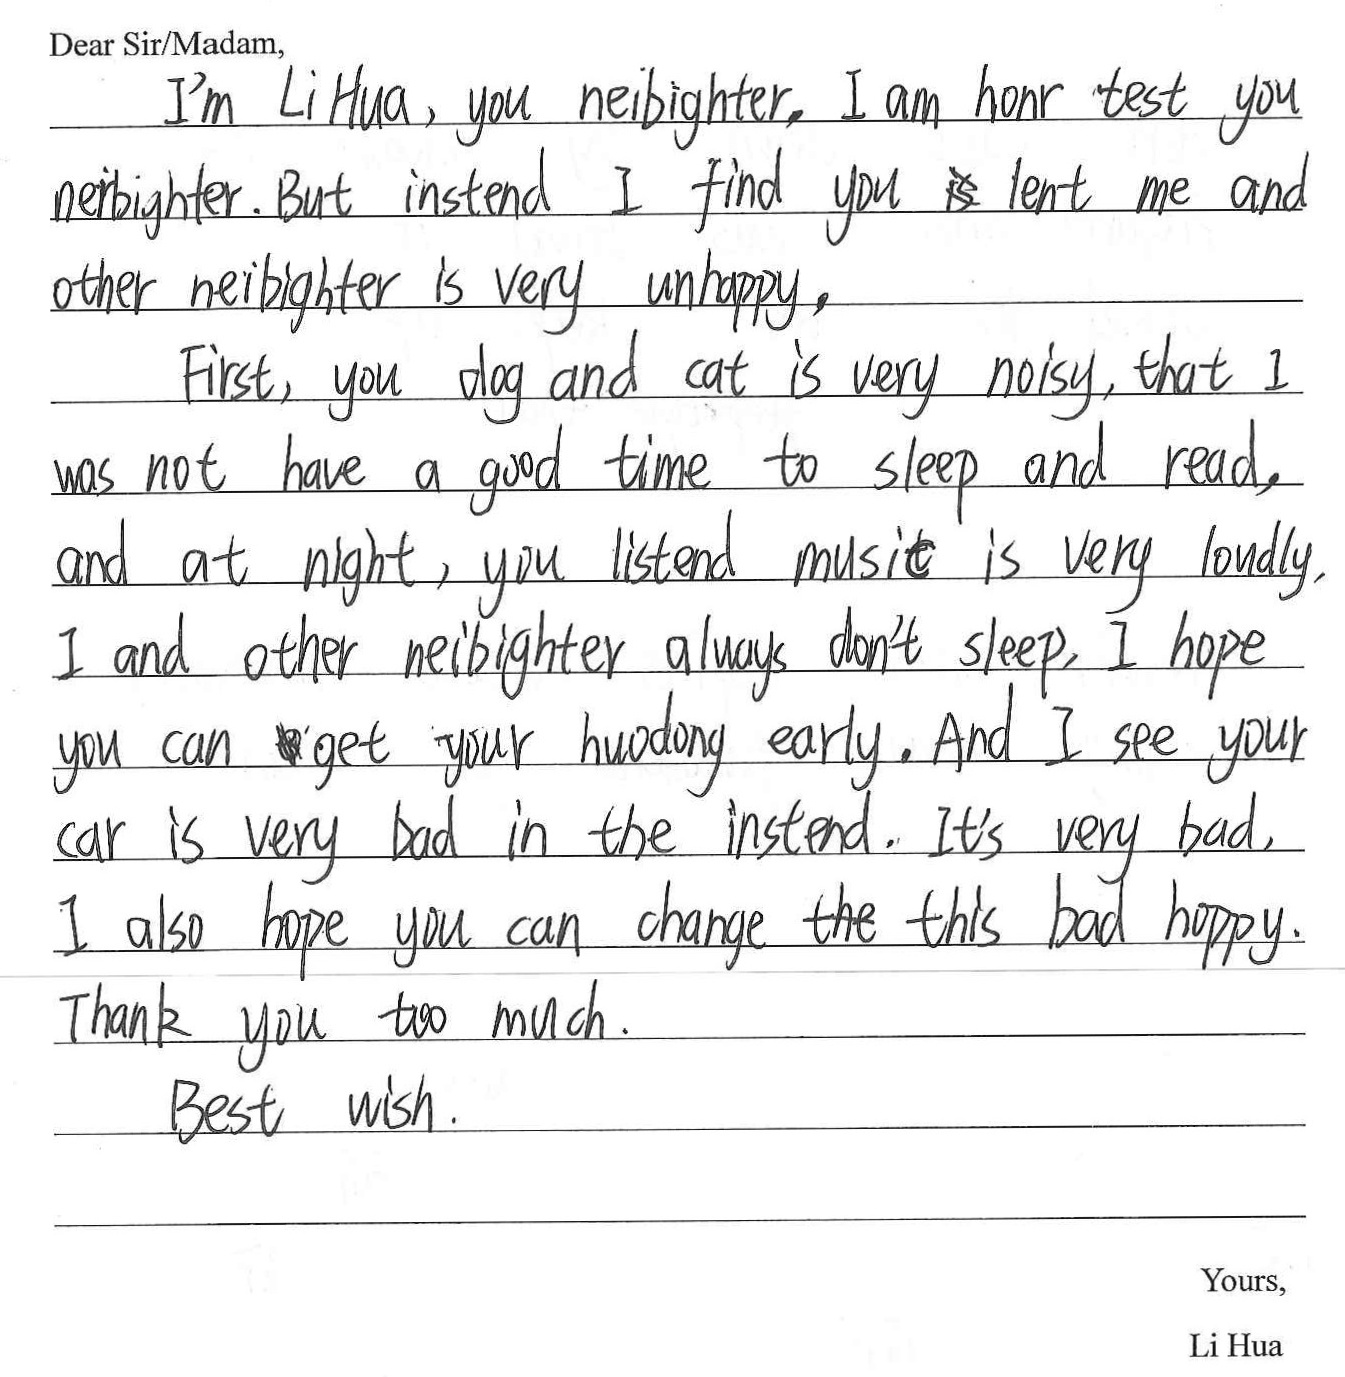 Dear Sir/Madam,
I'm Li Hua, you neibighter. I am honr test you
neibighter. But instend I find you lent me and
other neibighter is very unhappy.
First, you dog and cat is very noisy, that I
was not have a good time to sleep and read,
and at night, you listend music is very loudly,
I and other neibighter always don't sleep. I hope
you can get your huodong early. And I see your
car is very bad in the instend. It's very bad,
I also hope you can change the this bad hoppy.
Thank you too much.
Best wish.
Yours,
Li Hua